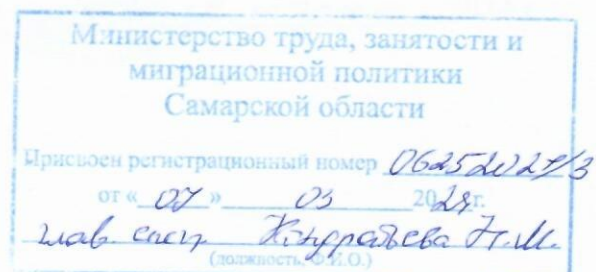 Министерство труда, занятости и
миграционной политики
Самарской области
Присвоен регистрационный номер
от « 07 » 03 2024г.
глав. спец. Кондратьева Н.М.
(должность, Ф.И.О.)